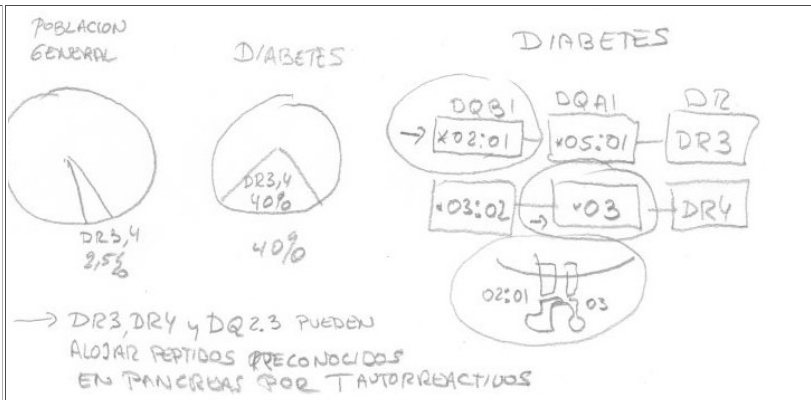 POBLACION
GENERAL
DR3,4
2,5%
DIABETES
DR3,4
40%
40%
DIABETES
DQB1 DQA1 DR
→ *02:01 *05:01 DR3
*03:02 → *03 DR4
02:01 03
→ DR3, DR4 y DQ2.3 PUEDEN
ALOJAR PEPTIDOS RECONOCIDOS
EN PANCREAS POR T AUTORREACTIVOS